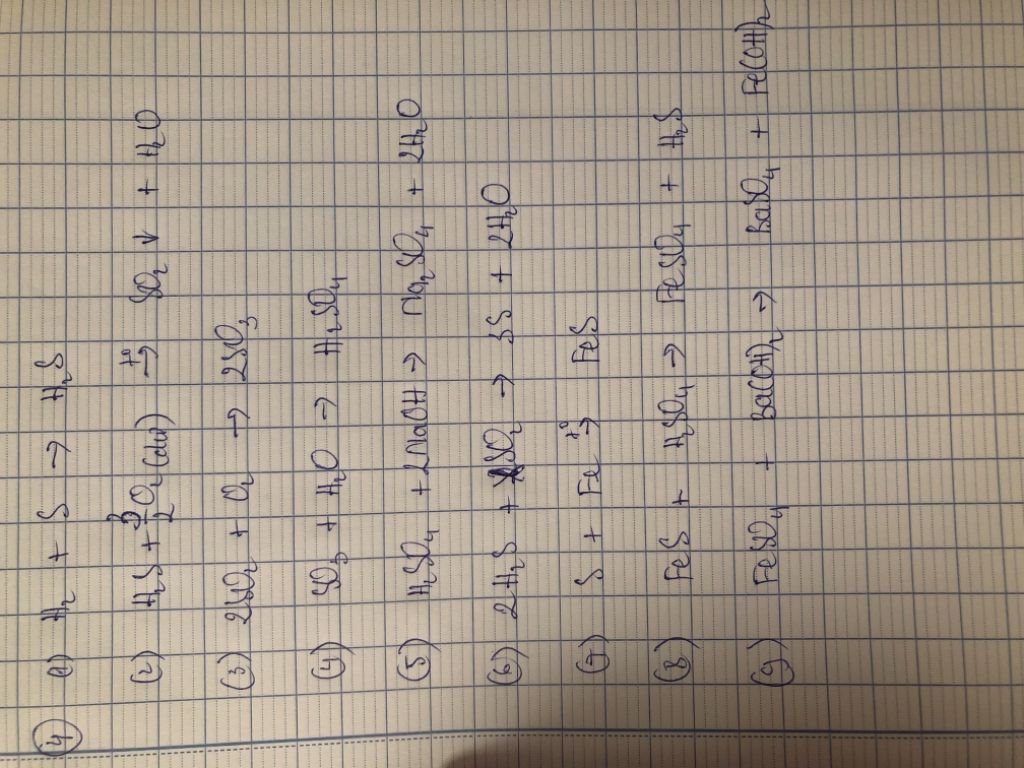 ④
(1) H₂ + S → H₂S
(2) H₂S + 3/2 O₂ (dư) →t° SO₂ ↓ + H₂O
(3) 2SO₂ + O₂ → 2SO₃
(4) SO₃ + H₂O → H₂SO₄
(5) H₂SO₄ + 2NaOH → Na₂SO₄ + 2H₂O
(6) 2H₂S + SO₂ → 3S + 2H₂O
(7) S + Fe →t° FeS
(8) FeS + H₂SO₄ → FeSO₄ + H₂S
(9) FeSO₄ + Ba(OH)₂ → BaSO₄ + Fe(OH)₂